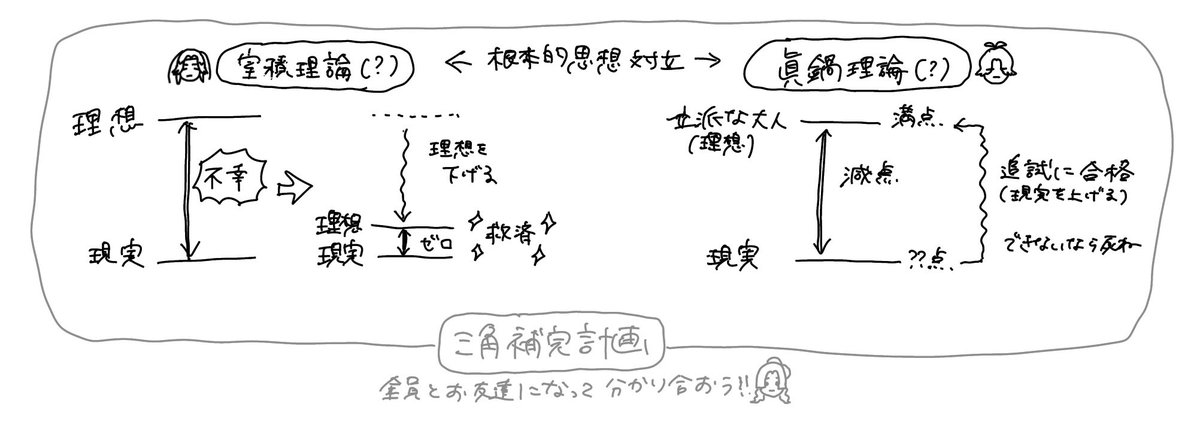 室積理論(?)
← 根本的思想対立 →
眞鍋理論(?)
理想
不幸
現実
理想を
下げる
理想
現実
ゼロ
救済
立派な大人
(理想)
満点
減点
現実
??点
追試に合格
(現実を上げる)
できないなら死ね
三角補完計画
全員とお友達になって分かり合おう!!